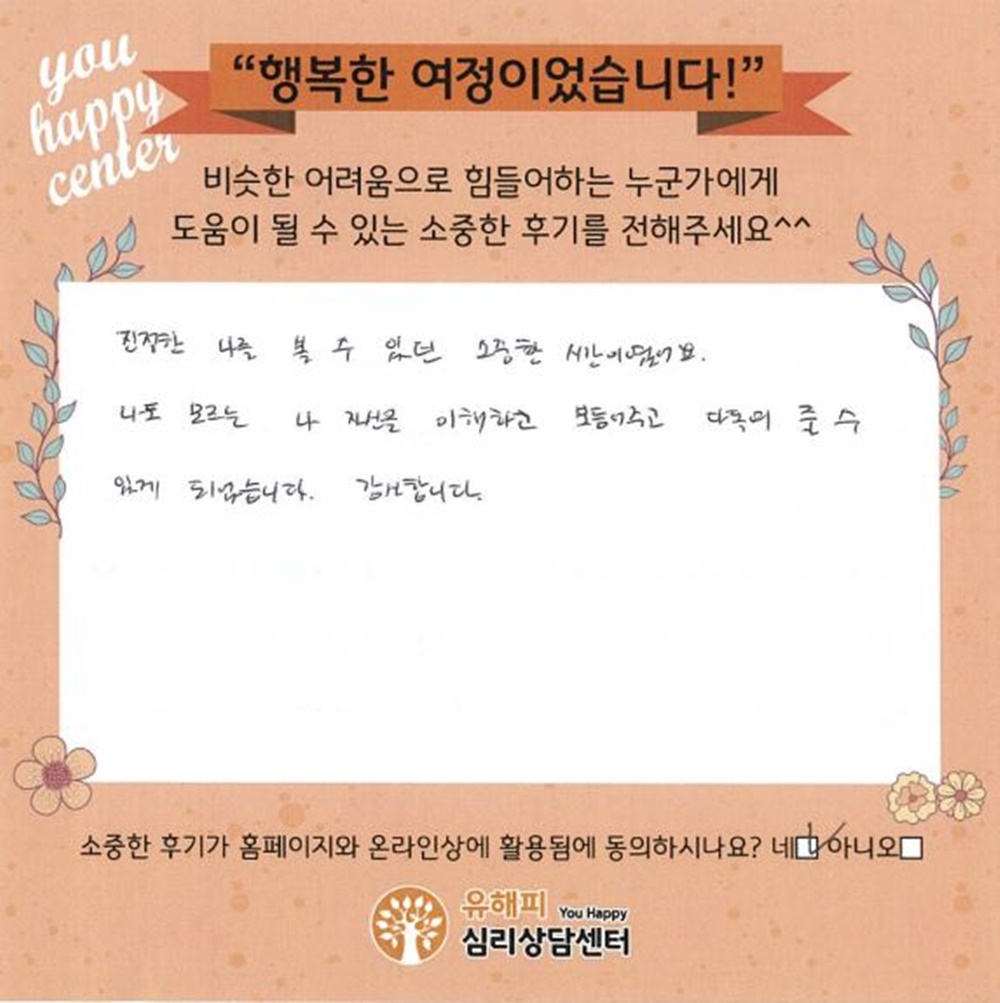 you
happy
center
“행복한 여정이었습니다!”
비슷한 어려움으로 힘들어하는 누군가에게
도움이 될 수 있는 소중한 후기를 전해주세요^^
진정한 나를 볼 수 있던 소중한 시간이였어요.
나도 모르는 나 자신을 이해하고 보듬어주고 다독여 줄 수
있게 되었습니다. 감사합니다.
소중한 후기가 홈페이지와 온라인상에 활용됨에 동의하시나요? 네☑ 아니오□
유해피 You Happy
심리상담센터